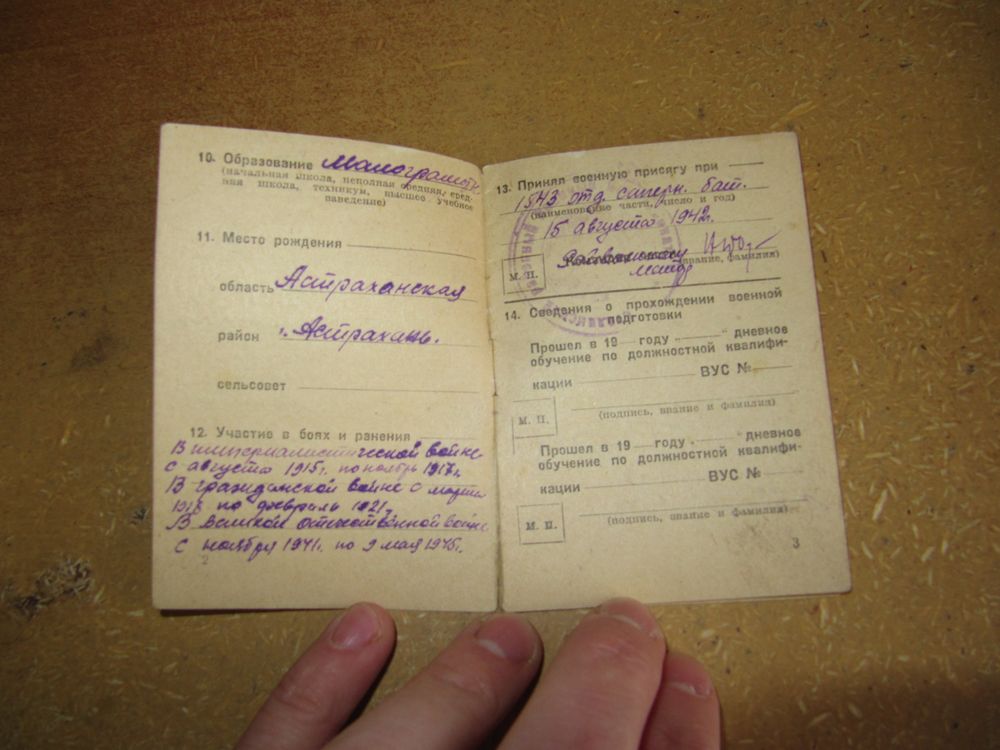 10. Образование Малограмотн.
(начальная школа, неполная средняя, сред-
няя школа, техникум, высшее учебное
заведение)
11. Место рождения
область Астраханская
район г. Астрахань.
сельсовет
12. Участие в боях и ранения
В империалистической войне
с августа 1915г. по ноябрь 1917г.
В гражданской войне с марта
1918 по февраль 1921.
В Великой отечественной войне
с ноября 1941г. по 9 мая 1945г.
2
13. Принял военную присягу при
1543 отд. саперн. бат.
(наименование части, число и год)
15 августа 1942г.
М. П.
(звание, фамилия)
майор
14. Сведения о прохождении военной
подготовки
Прошел в 19 году дневное
обучение по должностной квалифи-
кации ВУС №
М. П. (подпись, звание и фамилия)
Прошел в 19 году дневное
обучение по должностной квалифи-
кации ВУС №
М. П. (подпись, звание и фамилия)
3